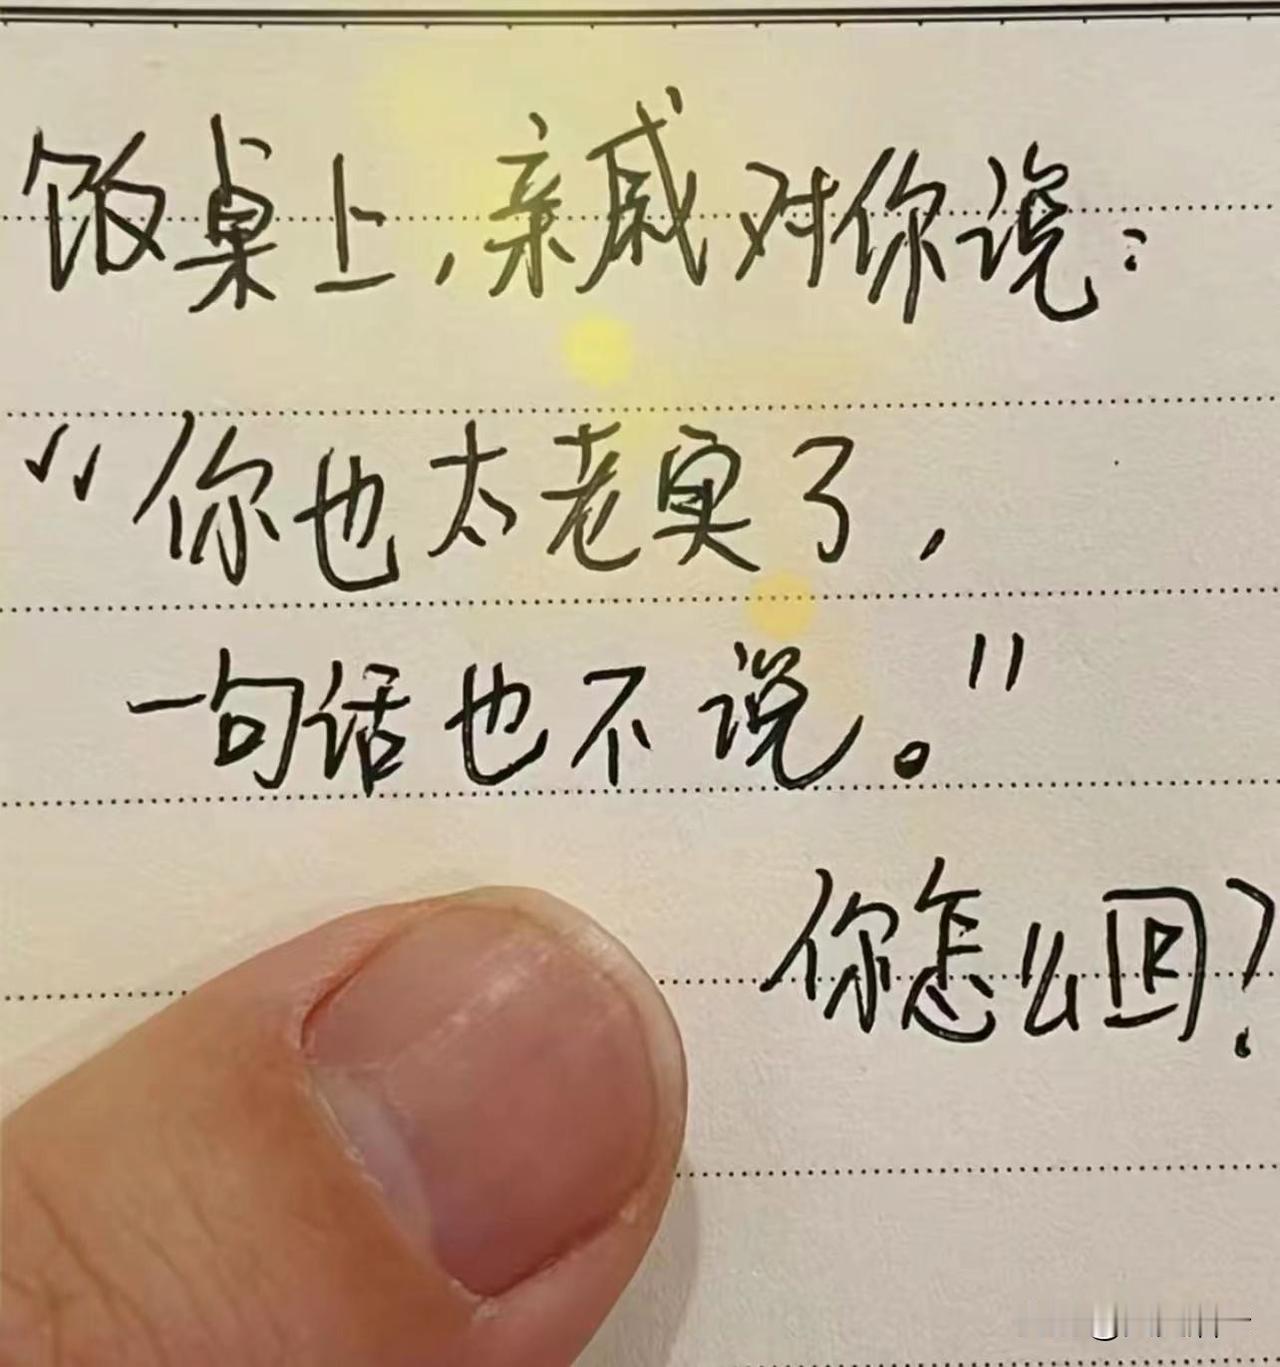 饭桌上，亲戚对你说：
“你也太老实了，
一句话也不说。”
你怎么回？